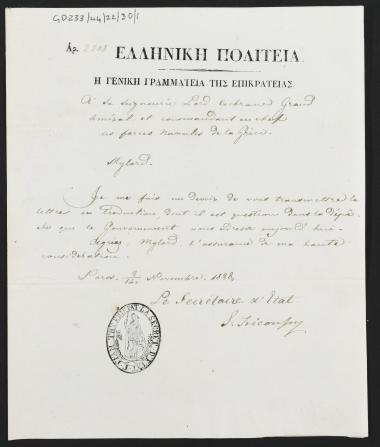 GD233/44/22/30/1
Αρ. 2208
ΕΛΛΗΝΙΚΗ ΠΟΛΙΤΕΙΑ
Η ΓΕΝΙΚΗ ΓΡΑΜΜΑΤΕΙΑ ΤΗΣ ΕΠΙΚΡΑΤΕΙΑΣ
A Sa Seigneurie Lord Cochrane Grand
Amiral et commandant en chef
des forces navales de la Grèce.
Mylord.
Je me fais un devoir de vous transmettre la
lettre en traduction, dont il est question dans la dépê-
che que le Gouvernement vous adresse aujourd'hui.
Mylord, l'assurance de ma haute
considération.
Novembre
Le Secrétaire d'Etat
S. Tricoupy